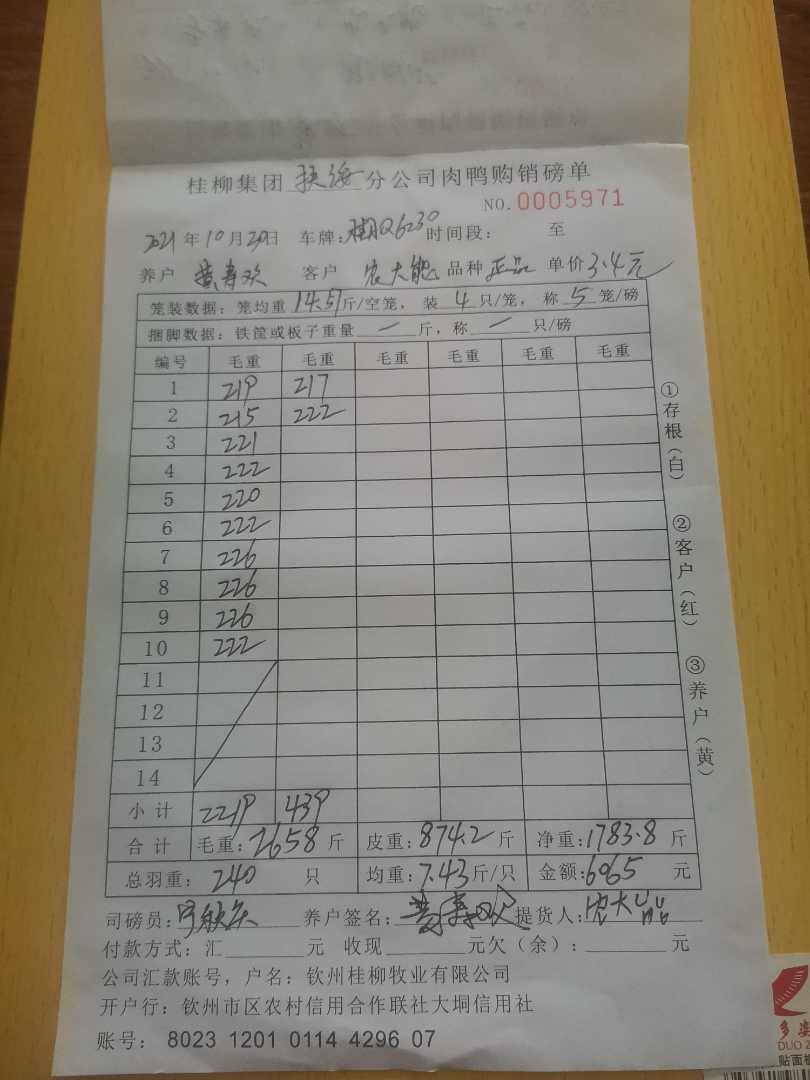 桂柳集团 扶绥 分公司肉鸭购销磅单
NO. 0005971
2021年10月20日 车牌: Q6230 时间段: 至
养户 黄寿欢 客户 农大能 品种 正品 单价 3.4元
笼装数据: 笼均重 14.57斤/空笼, 装 4 只/笼, 称 5 笼/磅
捆脚数据: 铁筐或板子重量 — 斤, 称 — 只/磅
编号 毛重 毛重 毛重 毛重 毛重 毛重
1 219 217
2 215 222
3 221
4 222
5 220
6 222
7 226
8 226
9 226
10 222
11
12
13
14
小计 2219 439
合计 毛重: 2658 斤 皮重: 874.2 斤 净重: 1783.8 斤
总羽重: 240 只 均重: 7.43斤/只 金额: 6065 元
司磅员: 养户签名: 黄寿欢 提货人: 农大
付款方式: 汇 元 收现 元欠(余): 元
公司汇款账号, 户名: 钦州桂柳牧业有限公司
开户行: 钦州市区农村信用合作联社大垌信用社
账号: 8023 1201 0114 4296 07
①存根(白)
②客户(红)
③养户(黄)
多姿
DUO Z
贴面板